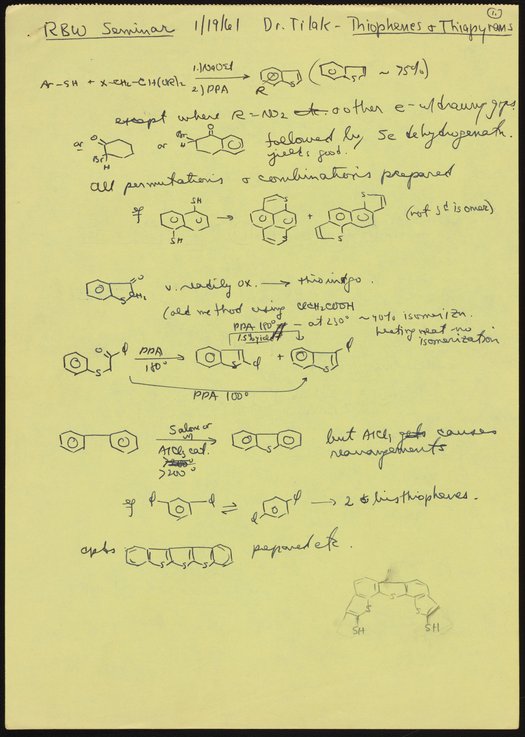 1.
RBW Seminar 1/19/61 Dr. Tilak - Thiophenes & Thiapyrans
Ar-SH + X-CH2-CH(OR)2 1.) NaOEt 2.) PPA R S ( S ~ 75%)
except where R = NO2 or other e- w/drawg gps.
or O Br H or Br H O followed by Se dehydrogenatn.
yields good.
all permutations & combinations prepared
SH SH → S S + S S (not 3d isomer)
O S CH2 v. readily ox. → thioindigo.
(old method using ClCH2COOH
PPA 180° - at 230° ~ 40% isomerizn.
heating neat no isomerization
S O φ PPA 180° S φ + S φ
PPA 100°
S alone or w/ AlCl3 cat. >200° S but AlCl3 causes
rearrangements
φ φ ⇌ φ φ → 2 bisthiophenes.
S S S prepared etc.
S S S
SH SH